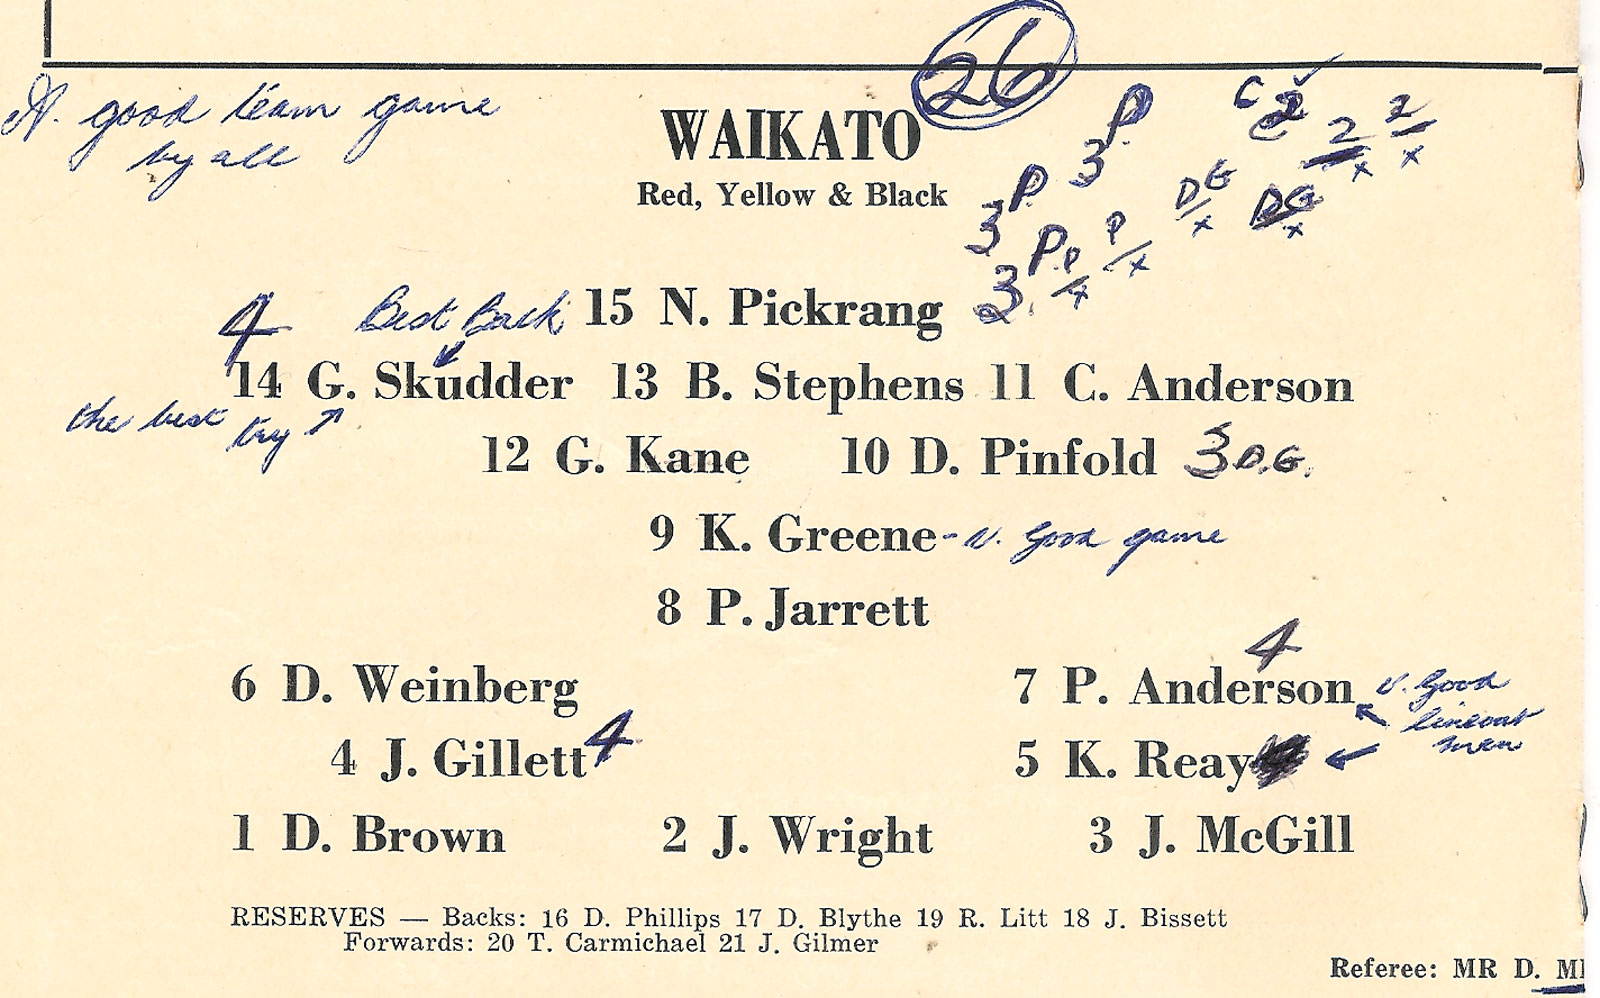 26
A. good team game
by all
WAIKATO
Red, Yellow & Black
3 P 3 P C 2 2 2
x x
DG DG
x x
3 P P P
x x
4 Best Back 15 N. Pickrang
14 G. Skudder 13 B. Stephens 11 C. Anderson
the best try
12 G. Kane 10 D. Pinfold 3 D.G.
9 K. Greene - v. good game
8 P. Jarrett
4
6 D. Weinberg 7 P. Anderson v. good
lineout
men
4 J. Gillett 4 5 K. Reay
1 D. Brown 2 J. Wright 3 J. McGill
RESERVES — Backs: 16 D. Phillips 17 D. Blythe 19 R. Litt 18 J. Bissett
Forwards: 20 T. Carmichael 21 J. Gilmer
Referee: MR D.